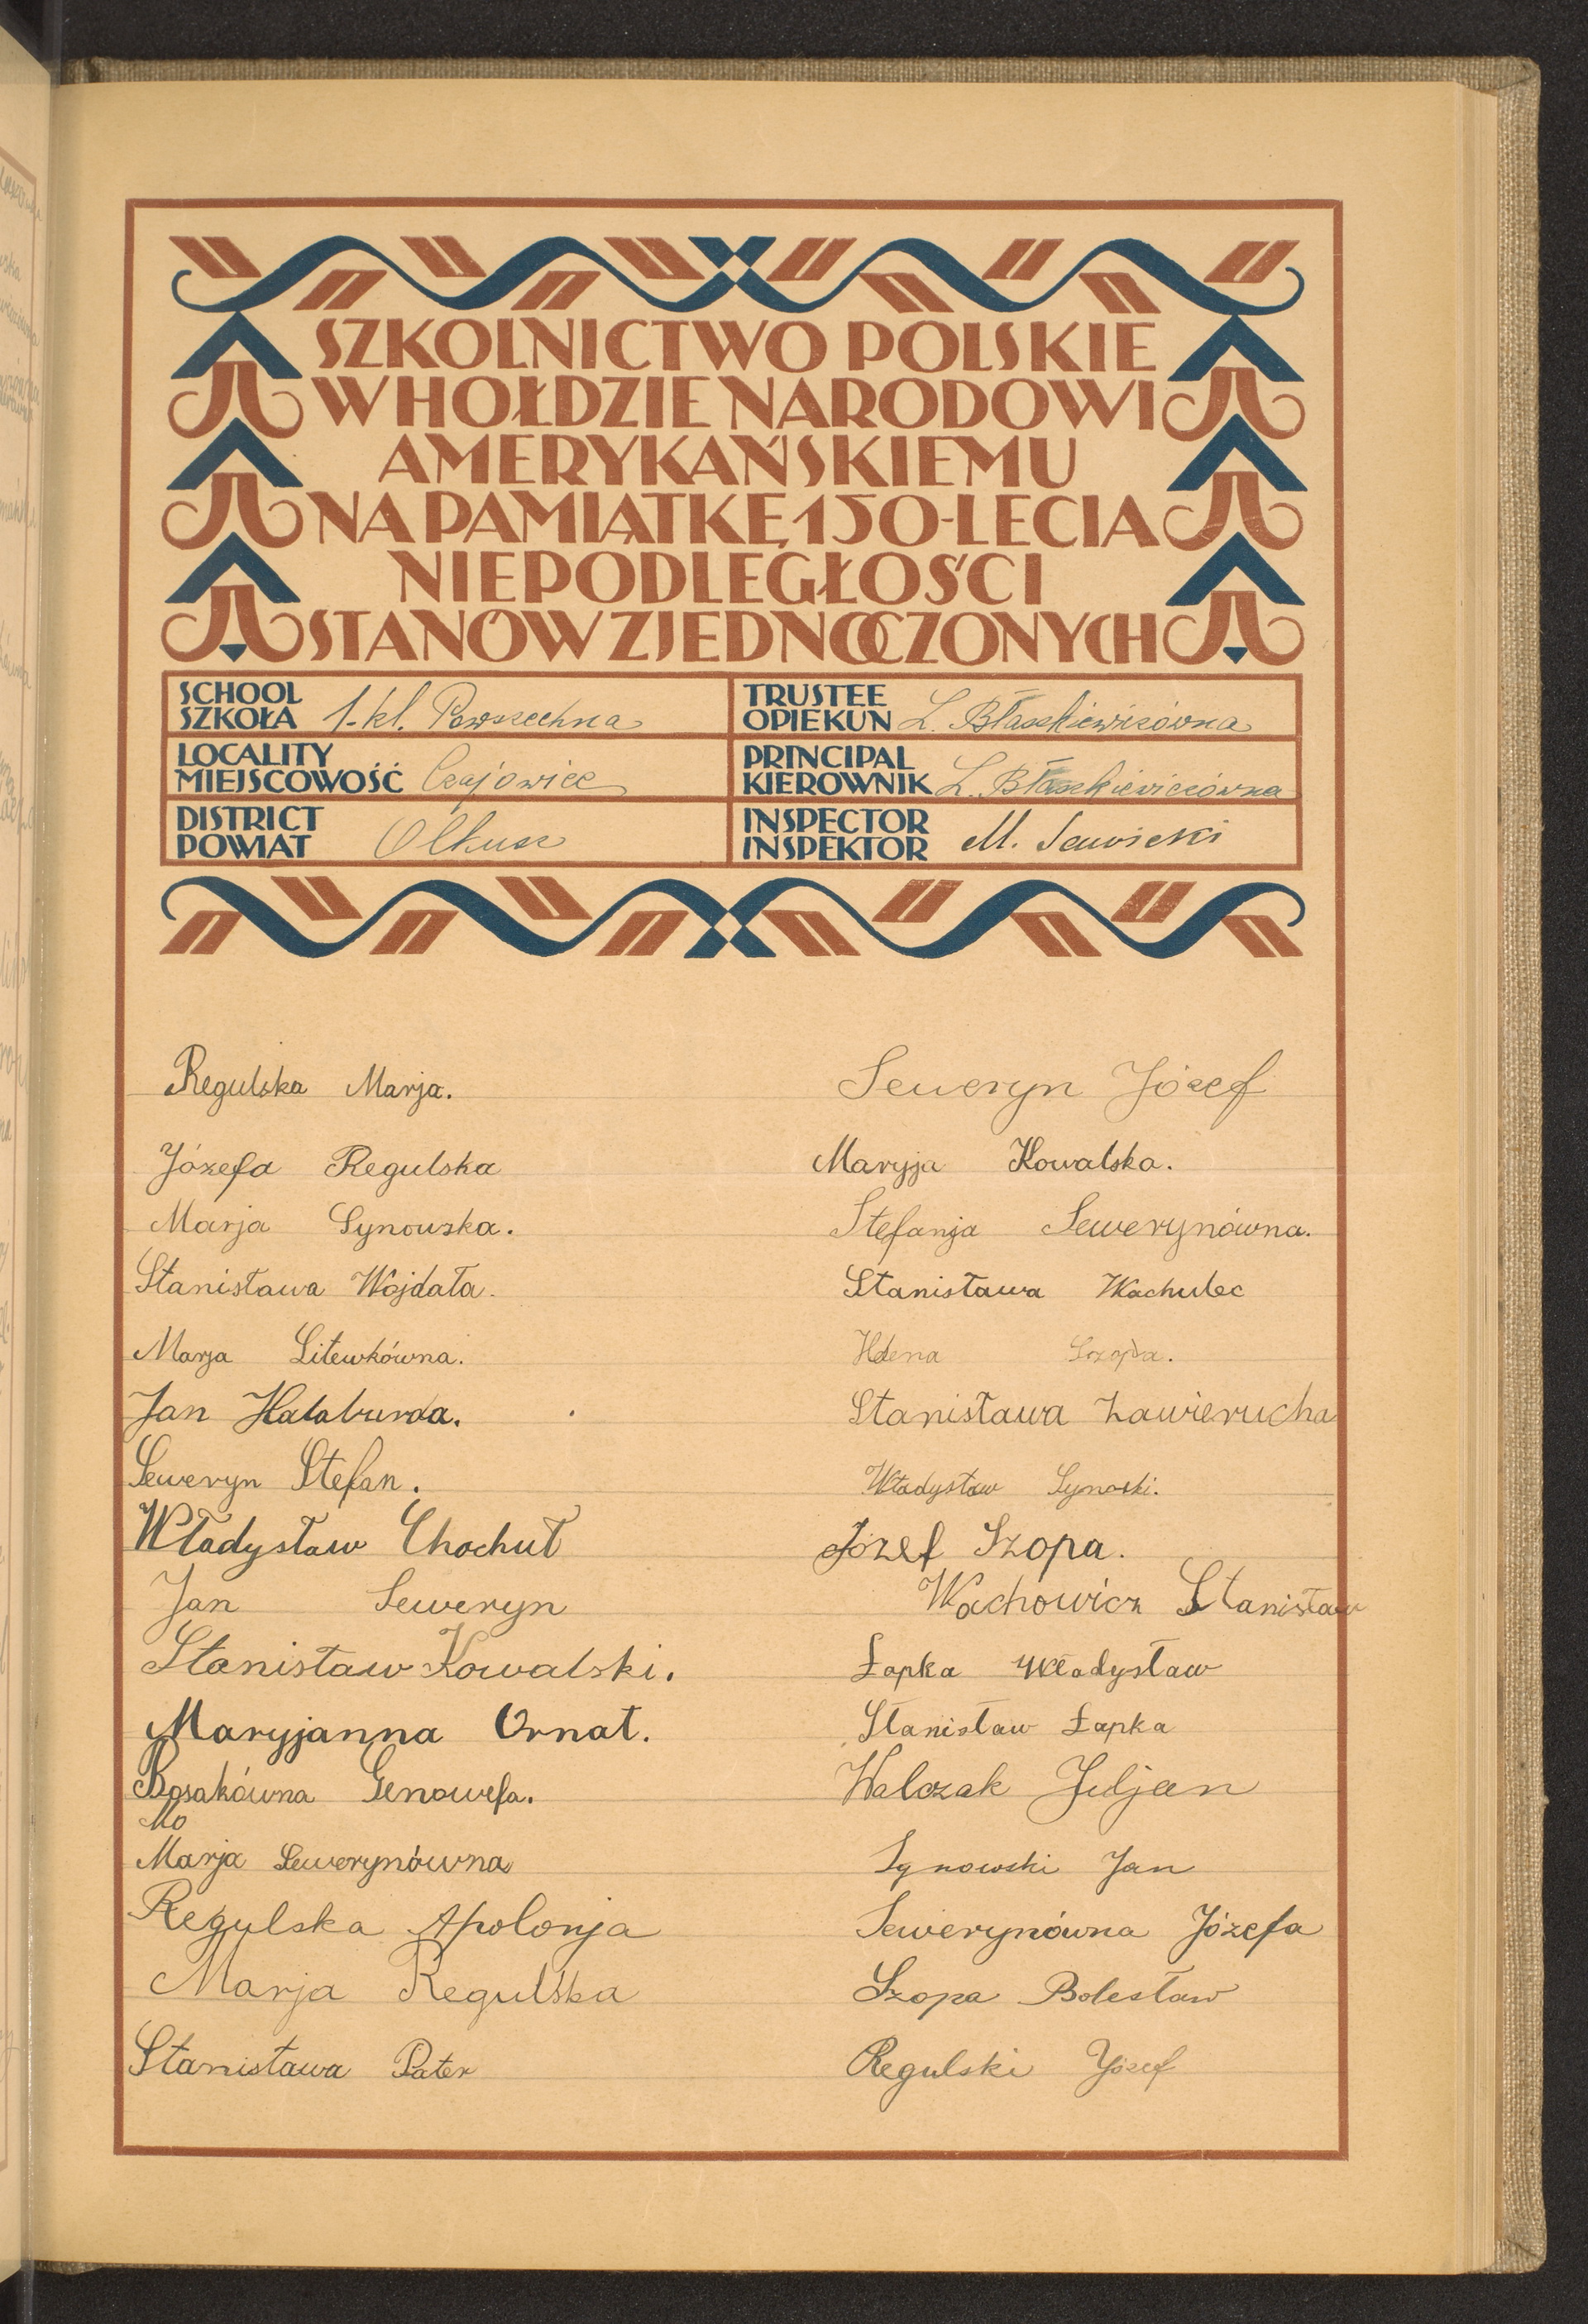 SZKOLNICTWO POLSKIE
W HOŁDZIE NARODOWI
AMERYKAŃSKIEMU
NA PAMIĄTKĘ 150-LECIA
NIEPODLEGŁOŚCI
STANÓW ZJEDNOCZONYCH
SCHOOL
SZKOŁA 1-kl. Powszechna
TRUSTEE
OPIEKUN L. Błaszkiewiczówna
LOCALITY
MIEJSCOWOŚĆ Czajowice
PRINCIPAL
KIEROWNIK L. Błaszkiewiczówna
DISTRICT
POWIAT Olkusz
INSPECTOR
INSPEKTOR M. Sawicki
Regulska Marja.
Józefa Regulska
Marja Synowska.
Stanisława Wojdała.
Marja Litewkówna.
Jan Hałaburda.
Seweryn Stefan.
Władysław Chochuł
Jan Seweryn
Stanisław Kowalski.
Maryjanna Ornat.
Bosakówna Genowefa.
Mo
Marja Sewerynówna
Regulska Apolonja
Marja Regulska
Stanisława Pater
Seweryn Józef
Maryja Kowalska.
Stefanja Sewerynówna.
Stanisława Wachulec
Helena Szopa.
Stanisława Zawierucha
Władysław Synoski.
Józef Szopa.
Wachowicz Stanisław
Łapka Władysław
Stanisław Łapka
Walczak Juljan
Synowski Jan
Sewerynówna Józefa
Szopa Bolesław
Regulski Józef